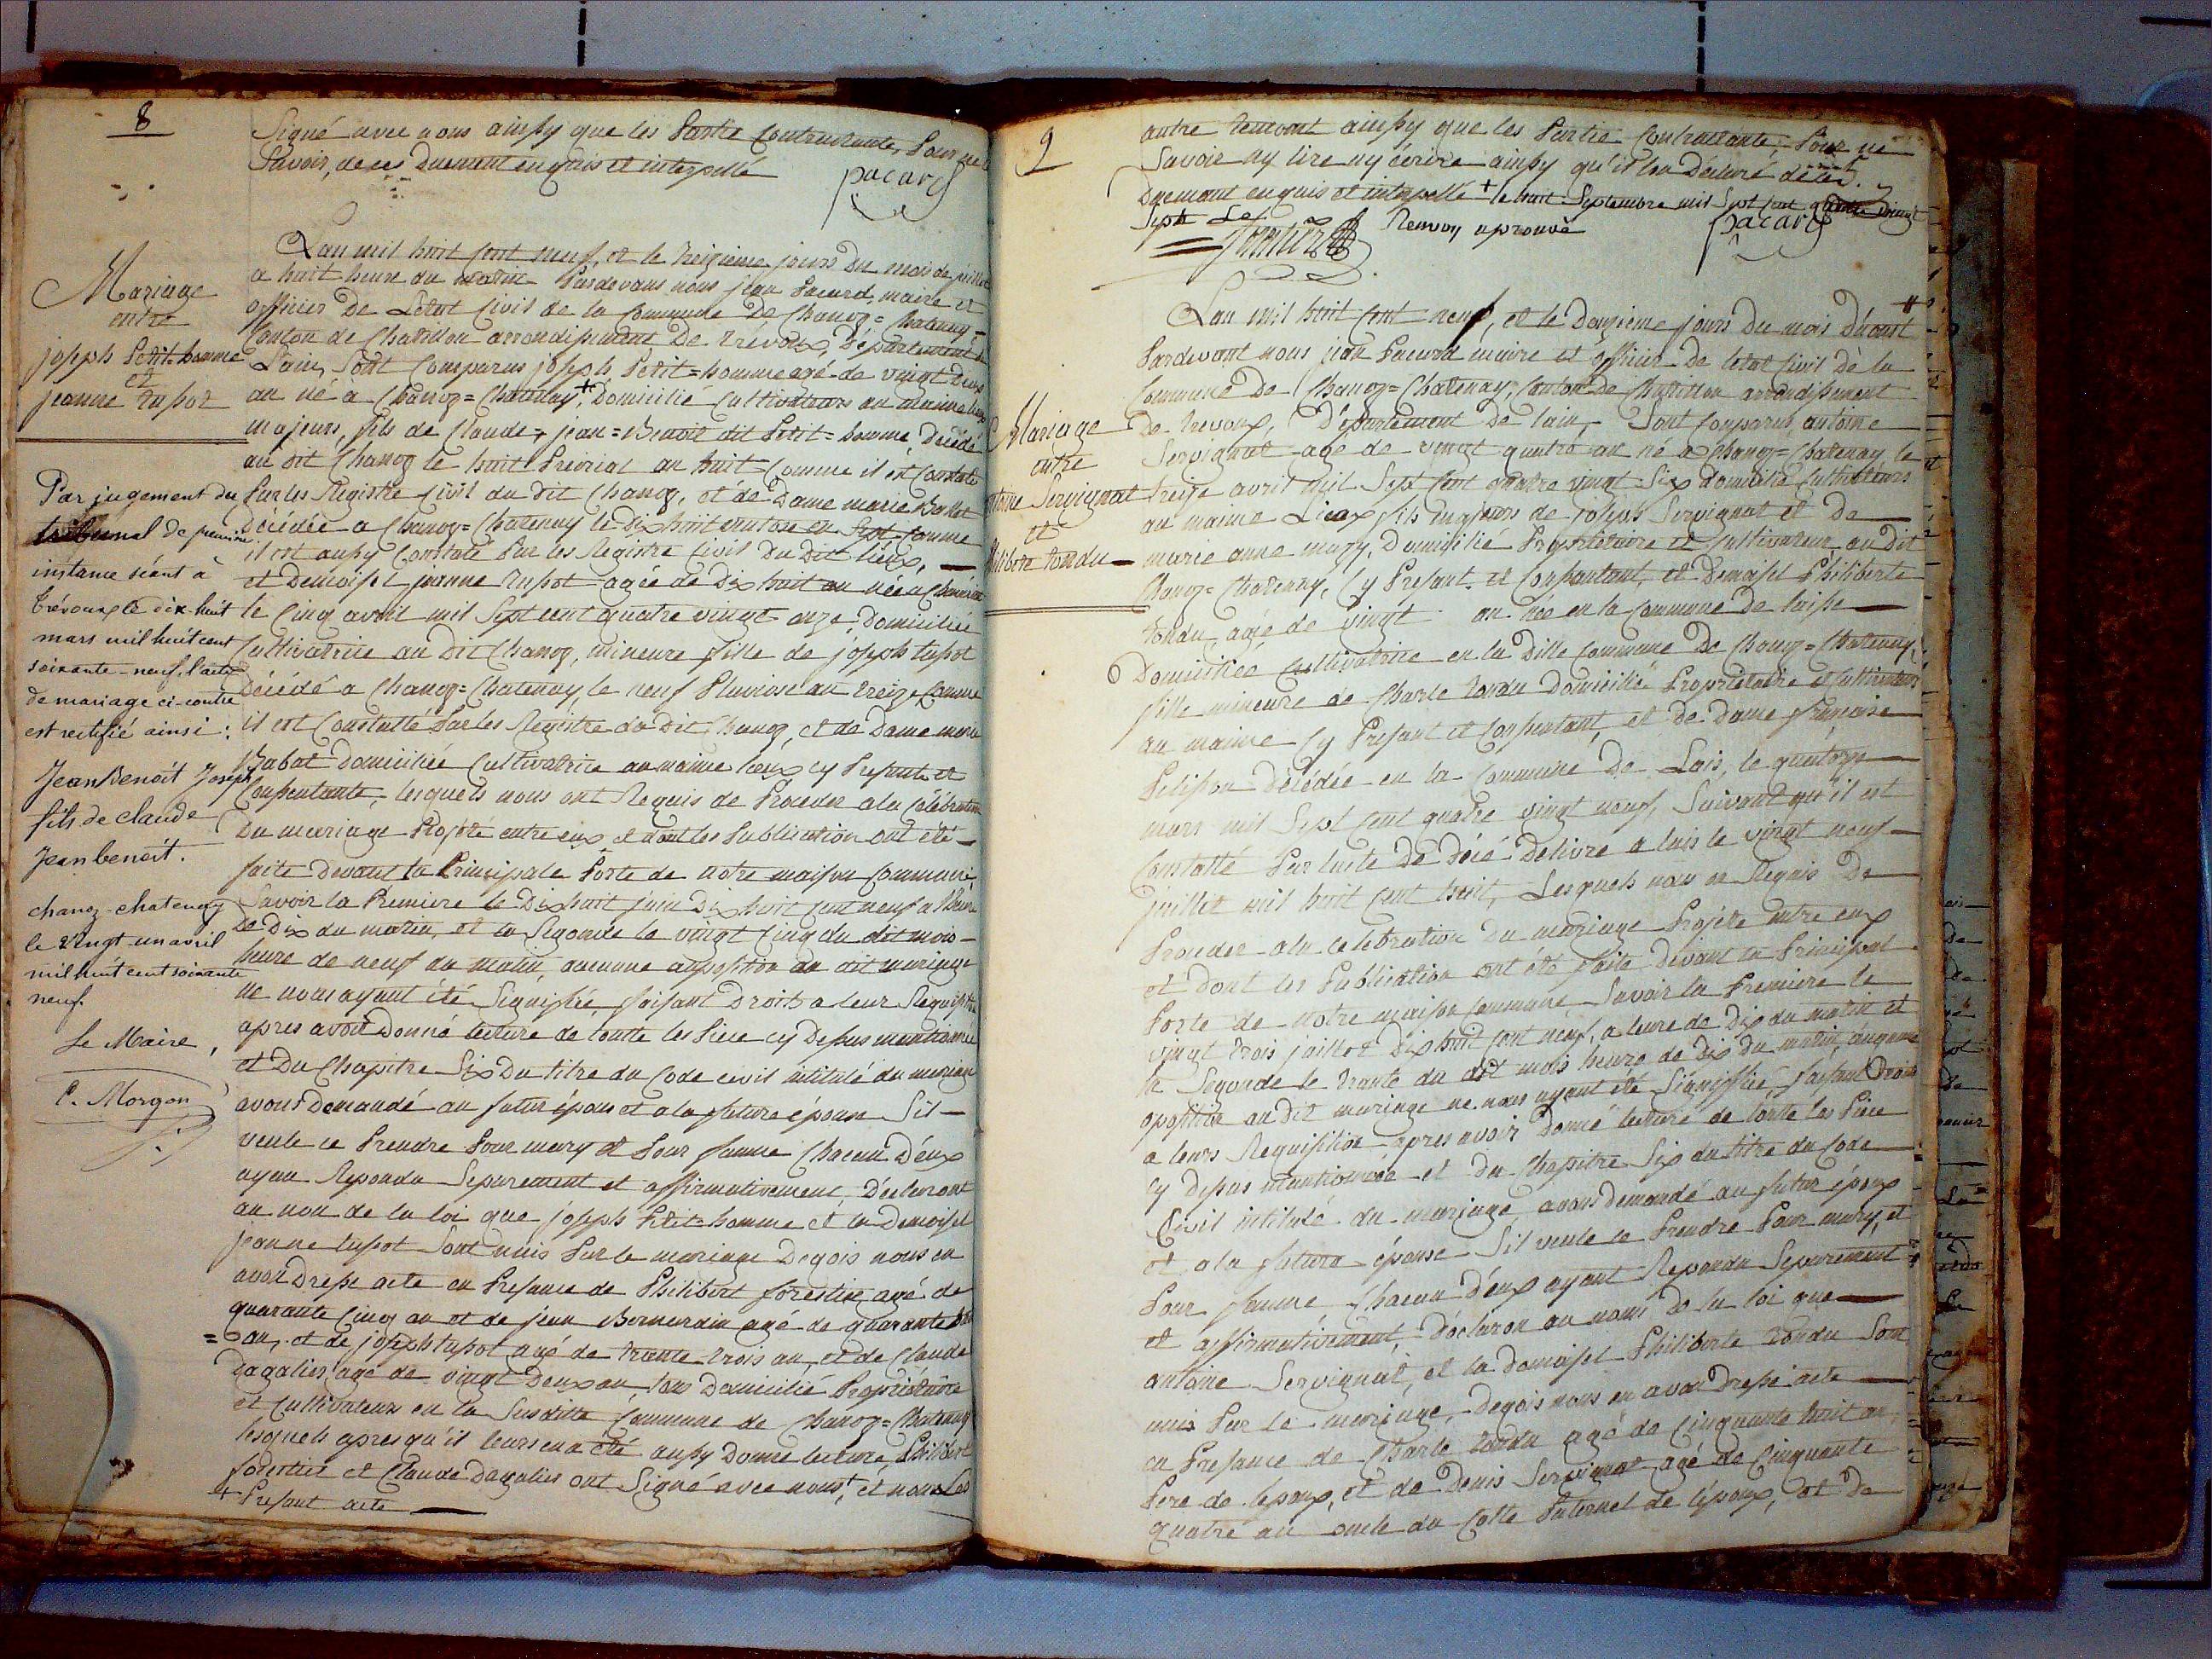 8
Signé avec nous ainsy que les Partie Contractante, Pour ne
Savoir, de ces Duement enquis et interpellé
pacard
Mariage
entre
joseph Petit-homme
et
jeanne tupot
Par jugement du
tribunal de première
instance séant à
Trévoux le dix-huit
mars mil huit cent
soixante-neuf, l'acte
de mariage ci-contre
est rectifié ainsi :
Jean Benoit Joseph
fils de claude
Jean benoit.
chanoz-chatenay
le vingt un avril
mil huit cent soixante
neuf.
Le Maire,
C. Morgon
Lan mil huit Cent neuf, et le treizieme jours Du mois de juillet
a huit heure du matin Pardevans nous jean Pacard, maire et
officier De Letat Civil de la Commune De Chanoz=Chatenay=
Conton de Chatillon arrondissement De Trévoux, Département de
Lain, Sont Comparus joseph Petit=homme agé de vingt Deux
an né à Chanoz=Chatenay+, Domicilié Cultivateurs au maime lieux
majeurs, fils de Claude, jean=Benoit dit Petit=homme, Décédé
au dit Chanoz le huit Preirial an huit Comme il est Constaté
Sur les Registre Civil du dit Chanoz, et de Dame marie
Décédée a Chanoz=Chatenay le Dix huit an Sept Comme
il est aussy Constaté Sur les Registre Civil Du Dit lieux,
et Demoisel jeanne tupot agée de Dix huit an née a
le Cinq avril mil Sept cent quatre vingt onze, Domiciliée
Cultivatrice au Dit Chanoz, mineure fille de joseph tupot
Décédé a Chanoz=Chatenay, le neuf Pluviose an treize Comme
il est Constatté Sur les Registre du Dit Chanoz, et de Dame marie
Babot Domiciliée Cultivatrice au maime lieux cy Presante et
Consentante, lesquels nous ont Requis de Proceder a la Célébration
Du mariage Projeté entre eux et dont les Publication ont été
faite Devant la Principale Porte de notre maison Commune,
Savoir la Premiere le Dix huit juin Dix huit Cent neuf a l'heure
de Dix du matin, et la Segonde le vingt Cinq du dit mois
heure de neuf du matin, aucune opposition au dit mariage
ne nous ayant été Signifiée, faisant Droit a leur Requisition
apres avoir Donné lecture de toutte les Piece cy Dessus mentionnée
et Du Chapitre Six Du titre du Code civil intitulé du mariage
avons Demandé au futur épous et a la future épouse Sil
veule ce Prendre Pour mary et Pour famme Chacun D'eux
ayan Repondu Separement et affirmativement, Declarons
au non de la loi que joseph Petit=homme et la Demoisel
jeanne tupot Sont unis Par le mariage Deqois nous en
avon Dresse acte en Presance de Philibert forestier agé de
quarante Cinq an et de jean Bernardin agé de quarante
= an, et de joseph tupot agé de trante trois an, et de Claude
Dagalier agé de vingt Deux an tous Domicilié Proprietaire
et Cultivateur en la Susditte Commune de Chanoz=Chatenay
lesquels apres qu'il leurs en a été aussy Donné lecture, Philibert
forestier et Claude Dagalier ont Signé avec nous+, et non Les
+ Presant acte
9
autre temoint ainsy que les Partie Contractante, Pour ne
Savoir ny lire ny écrire ainsy qu'il lon Déclaré de ces
Duement enquis et interpellé + le huit Septembre mil Sept Cent quatre vingt
Sept
Renvoy aprouvé
pacard
Mariage
entre
antoine Servignat
et
Philiberte tondu
Lan mil huit Cent neuf, et le Douzieme jours Du mois D'aoust
Pardevant nous jean Pacard maire et officier De letat Civil de la
Commune De Chanoz=Chatenay, Conton de Chatillon arrondissement
De trevoux, Département De lain, Sont Comparus, antoine
Servignat agé de vingt quatre an né a Chanoz=Chatenay le
treize avril mil Sept Cent quatre vingt Six Domicilié Cultivateurs
au maime Lieux fils majeurs de joseph Servignat et De
marie anne mury, Domicilié Proprietaire et Cultivateur au Dit
Chanoz=Chatenay, Cy Presant et Consentant, et Demoisel Philiberte
tondu agé de vingt an née en la Commune de laisse
Domiciliée Cultivatrice en la Ditte Commune De Chanoz=Chatenay,
fille mineure de Charle tondu Domicilié Proprietaire et Cultivateurs
au maime Cy Presant et Consentant, et De Dame françoise
Pelisson Décédée en la Commune De Lais, le quatorze
mars mil Sept Cent quatre vingt neuf, Suivant qu'il est
Constatté Par lacte De Décé Délivré a lais le vingt neuf
juillet mil huit Cent huit, Lesquels nous on Requis De
Proceder a la célébration Du mariage Projeté entre eux
et Dont les Publication ont été faite Devant la Principal
Porte de notre maison Commune Savoir la Premiere le
vingt trois juillet Dix huit Cent neuf, a leure de Dix du matin et
la Segonde le trante du dit mois heure de Dix Du matin, aucune
oposition au Dit mariage ne nous ayant été Signiffiée, faisant Droit
a leurs Requisition apres avoir Donné lecture de toute les Piece
cy dessus mantionnée et Du Chapitre Six du titre du Code
Civil intitulé du mariage, avons Demandé au futur époux
et a la future épouse Sil veule ce Prendre Pour mary, et
Pour famme Chacun D'eux ayant Repondu Separement
et affirmativement, Déclaron au noms De la loi que
antoine Servignat, et la Demoisel Philiberte tondu Sont
unis Par Le mariage, Deqois nous en avon Dressé acte
en Presance de Charle tondu agé de Cinquante huit an,
Pere de lépoux, et de Denis Servignat agé de Cinquante
quatre an oncle du Cotté Paternel de lépoux, et De